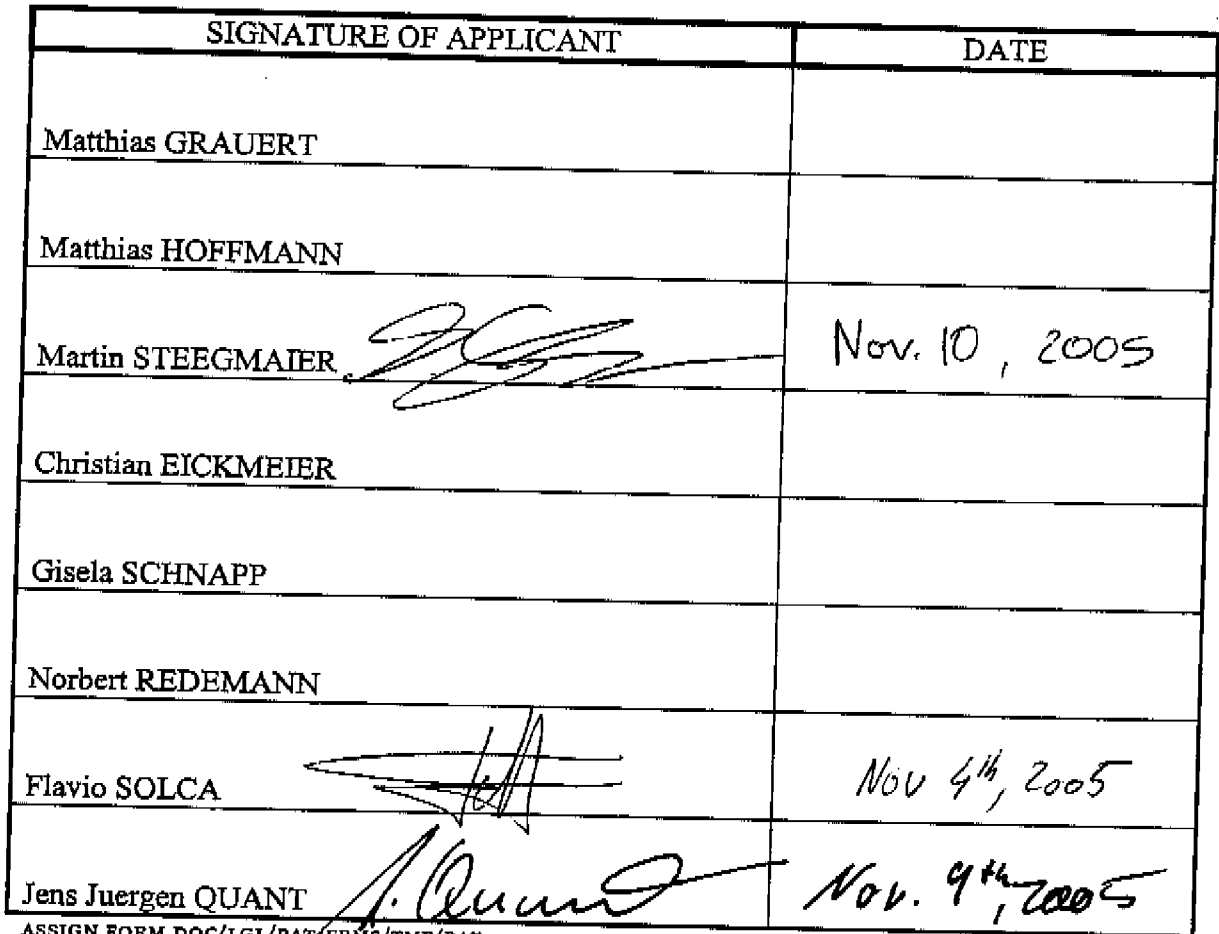 SIGNATURE OF APPLICANT DATE
Matthias GRAUERT
Matthias HOFFMANN
Martin STEEGMAIER Nov. 10, 2005
Christian EICKMEIER
Gisela SCHNAPP
Norbert REDEMANN
Flavio SOLCA Nov 4th, 2005
Jens Juergen QUANT J. Quant Nov. 9th, 2005
ASSIGN FORM DOC/LGL/PAT